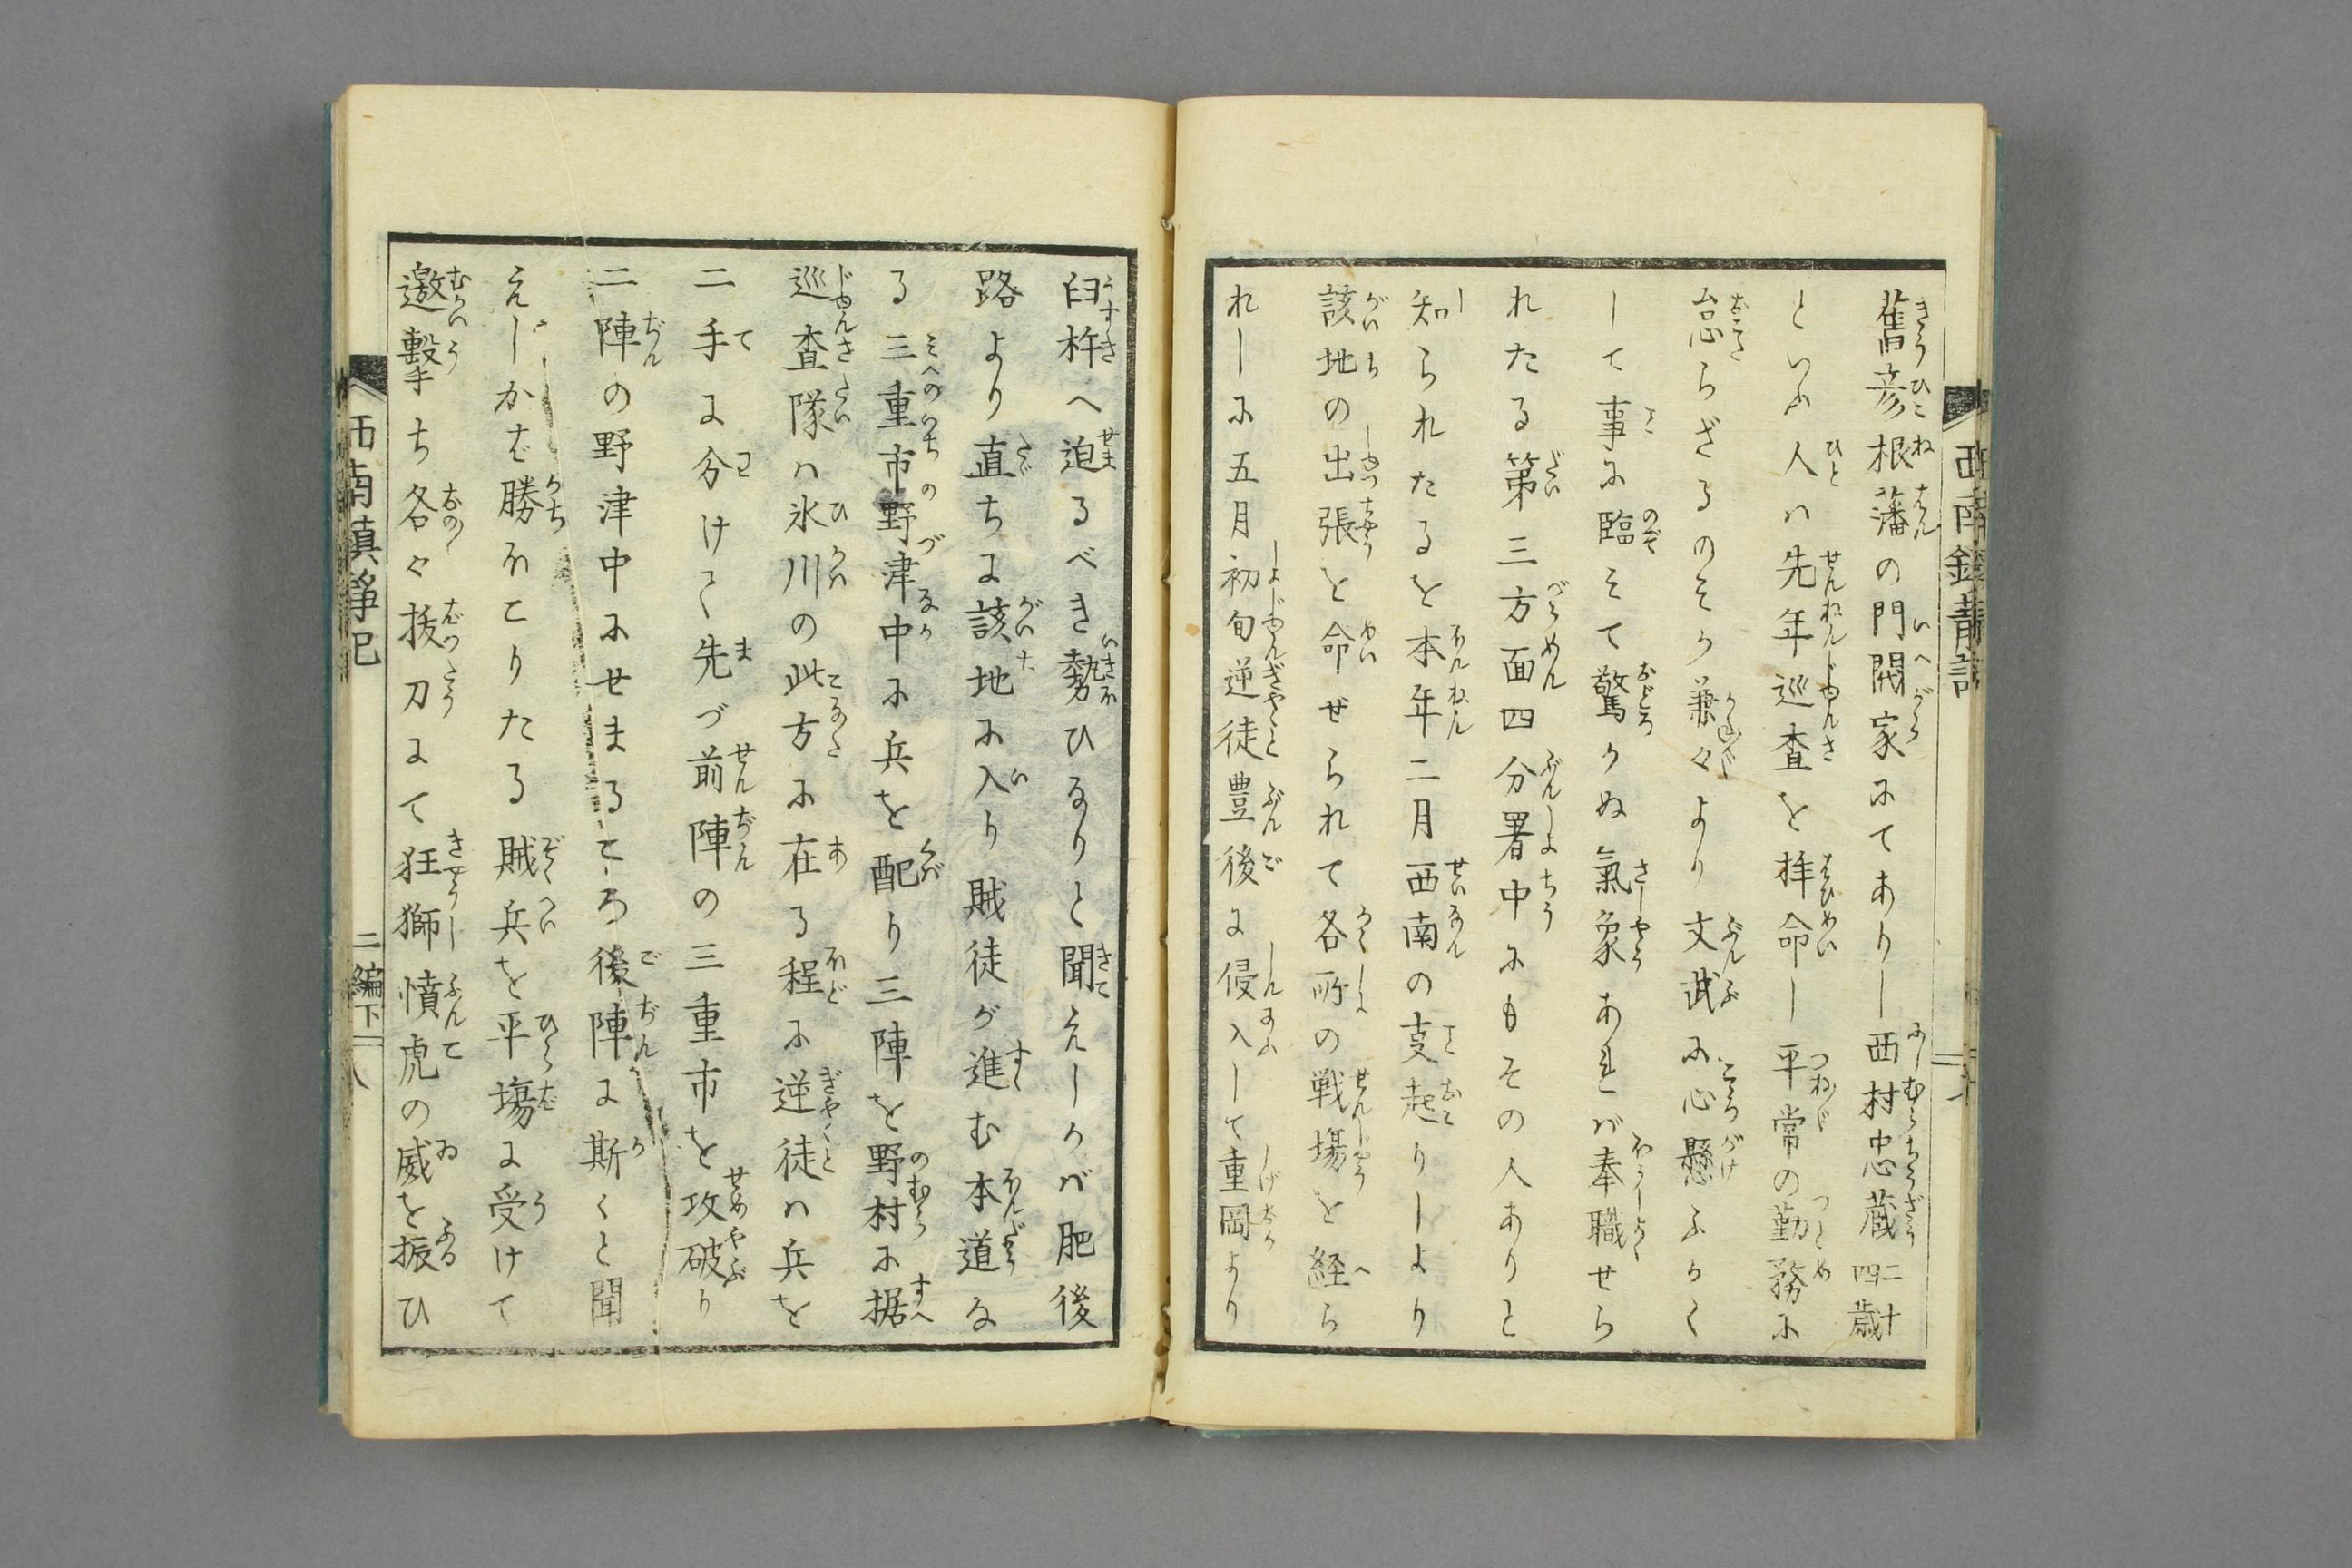 舊彦根藩の門閥家にてありし西村忠蔵二十四歳
といふ人ハ先年巡査を拝命し平常の勤務に
怠らざるのそか兼々より文武に心懸ふかく
して事に臨そて驚かぬ氣象あれバ奉職せら
れたる第三方面四分署中にもその人ありと
知られたるを本年二月西南の支起りしより
該地の出張を命ぜられて各所の戦場を経ら
れしに五月初旬逆徒豊後に侵入して重岡より
臼杵へ迫るべき勢ひなりと聞えしかバ肥後
路より直ちに該地に入り賊徒が進む本道な
る三重市野津中に兵を配り三陣を野村に据
巡査隊ハ氷川の此方に在る程に逆徒ハ兵を
二手に分けて先づ前陣の三重市を攻破り
二陣の野津中にせまるころ後陣に斯くと聞
えしかば勝ほこりたる賊兵を平塲に受けて
邀擊ち各々拔刀にて狂獅憤虎の威を振ひ
西南鎮静記
二編下
八